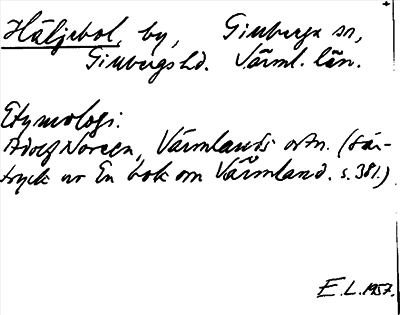 Häljebol, by, Gillberga sn,
Gillbergs hd. Värml. län.
Etymologi:
Adolf Noreen, Värmlands ortn. (sär-
tryck ur En bok om Värmland. s. 381.)
E. L. 1957.